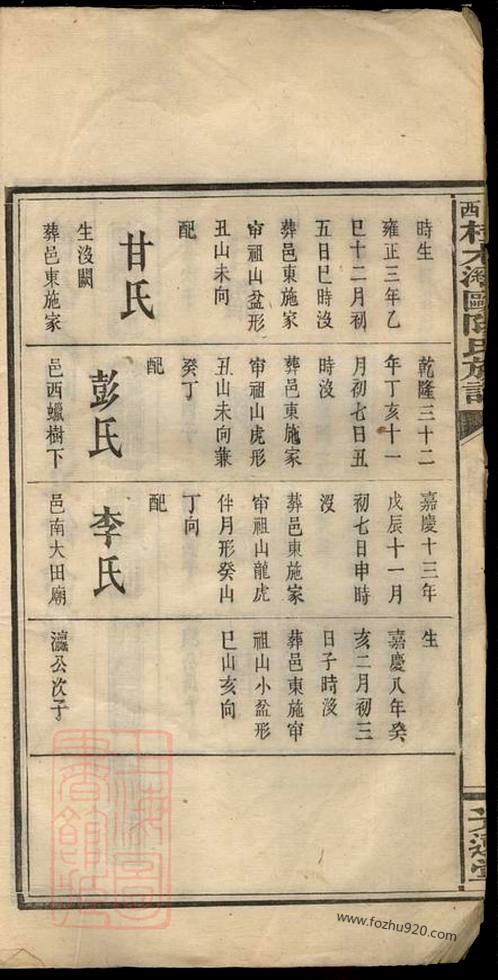 時生
雍正三年乙
巳十二月初
五日巳時沒
葬邑東施家
帘祖山盆形
丑山未向
配
甘氏
生沒闕
葬邑東施家
乾隆三十二
年丁亥十一
月初七日丑
時沒
葬邑東施家
帘祖山虎形
丑山未向兼
癸丁
配
彭氏
邑西蠟樹下
嘉慶十三年
戊辰十一月
初七日申時
沒
葬邑東施家
帘祖山龍虎
伴月形癸山
丁向
配
李氏
邑南大田廟
生
嘉慶八年癸
亥二月初三
日子時沒
葬邑東施帘
祖山小盆形
巳山亥向
瀛公次子
www.fozhu920.com